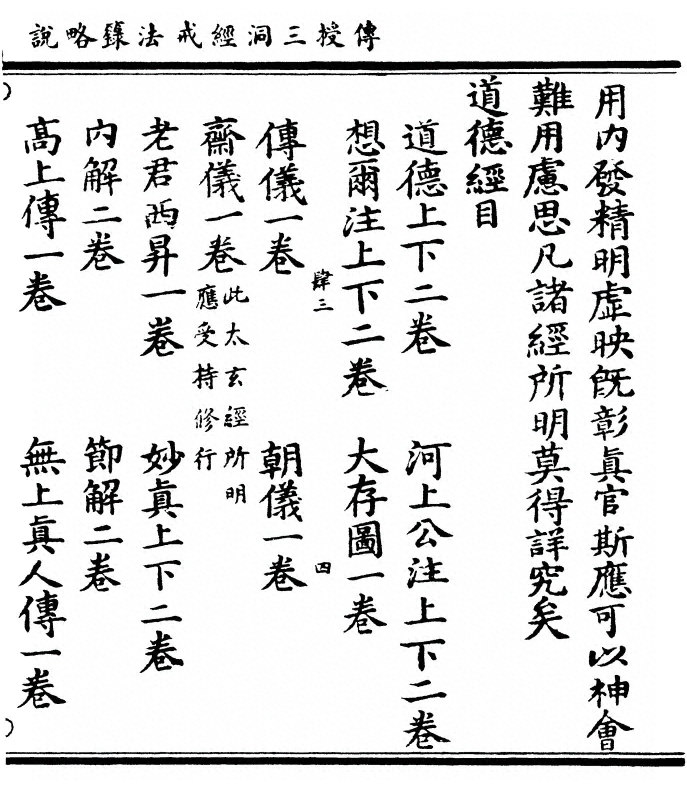 傳授三洞經戒法籙略說
用内發精明虛映旣彰眞官斯應可以神會
難用慮思凡諸經所明莫得詳究矣
道德經目
道德上下二卷 河上公注上下二卷
想爾注上下二卷 大存圖一卷
肆三 四
傳儀一卷 朝儀一卷
齋儀一卷 此太玄經所明
應受持修行
老君西昇一卷 妙眞上下二卷
内解二卷 節解二卷
高上傳一卷 無上眞人傳一卷